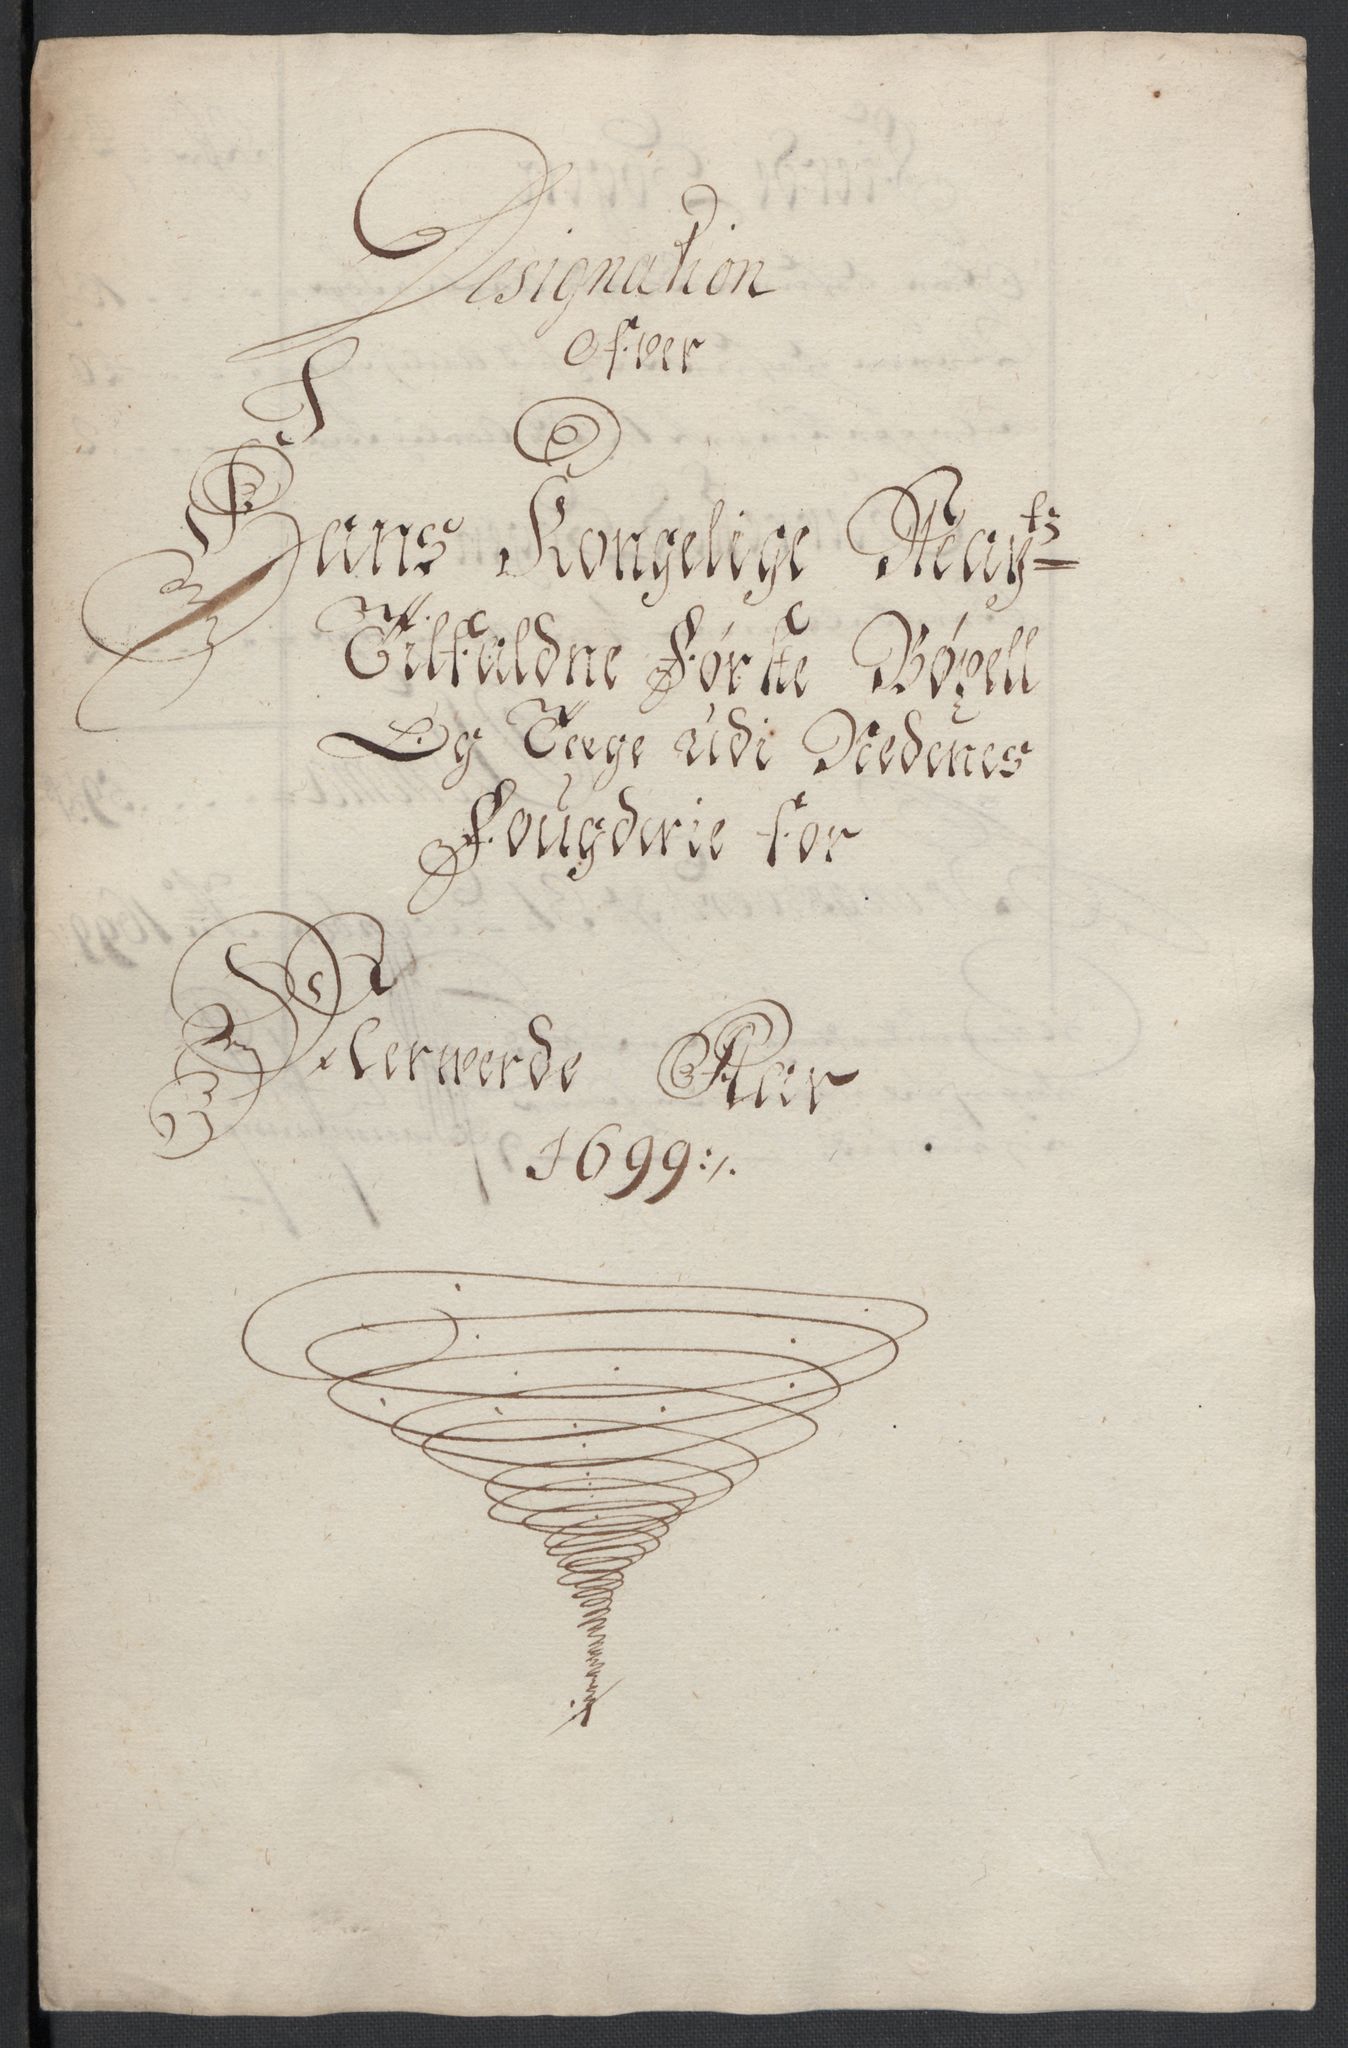 Designation
Ofver
Hans Kongelige May^tz
Tilfaldne Første Bøxell
Og Tæge udi Nedenes
Fougderie for
Nerwerde Aar
1699:/.